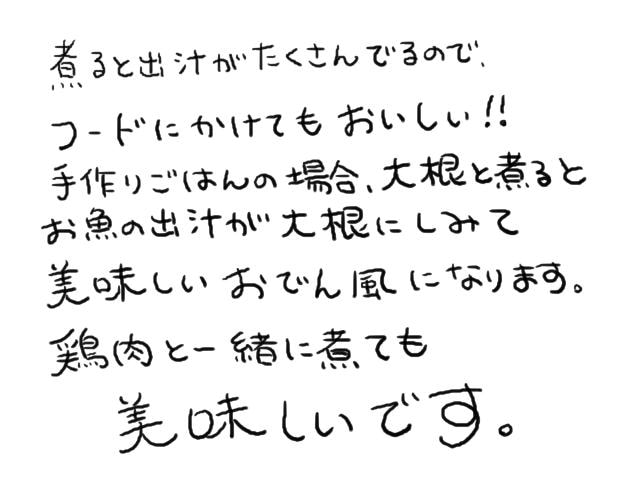 煮ると出汁がたくさんでるので、
フードにかけてもおいしい!!
手作りごはんの場合、大根と煮ると
お魚の出汁が大根にしみて
美味しいおでん風になります。
鶏肉と一緒に煮ても
美味しいです。